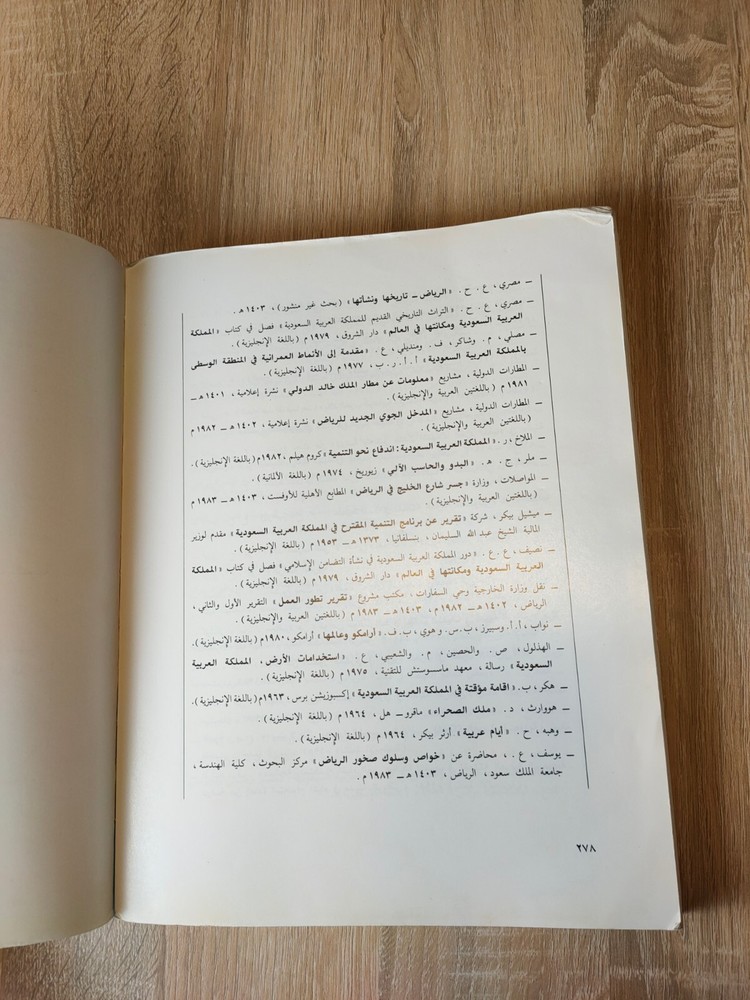 ــ مصري، ع. ح. «الرياض ــ تاريخها ونشأتها» (بحث غير منشور)، ١٤٠٣هـ.
ــ مصري، ع. ح. «التراث التاريخي القديم للمملكة العربية السعودية» فصل في كتاب «المملكة
العربية السعودية ومكانتها في العالم» دار الشروق، ١٩٧٩م (باللغة الإنجليزية).
ــ مصلي، م. وشاكر، ف. ومنديلي، ع. «مقدمة إلى الأنماط العمرانية في المنطقة الوسطى
بالمملكة العربية السعودية» أ. أ. ر. ب، ١٩٧٧م (باللغة الإنجليزية).
ــ المطارات الدولية، مشاريع «معلومات عن مطار الملك خالد الدولي» نشرة إعلامية، ١٤٠١هـ ــ
١٩٨١م (باللغتين العربية والإنجليزية).
ــ المطارات الدولية، مشاريع «المدخل الجوي الجديد للرياض» نشرة إعلامية، ١٤٠٢هـ ــ ١٩٨٢م
(باللغتين العربية والإنجليزية).
ــ الملاخ، ر. «المملكة العربية السعودية: اندفاع نحو التنمية» كروم هيلم، ١٩٨٢م (باللغة الإنجليزية).
ــ ملر، ج. هـ. «البدو والحاسب الآلي» زيوريخ، ١٩٧٤م (باللغة الألمانية).
ــ المواصلات، وزارة «جسر شارع الخليج في الرياض» المطابع الأهلية للأوفست، ١٤٠٣هـ ــ ١٩٨٣م
(باللغتين العربية والإنجليزية).
ــ ميشيل بيكر، شركة «تقرير عن برنامج التنمية المقترح في المملكة العربية السعودية» مقدم لوزير
المالية الشيخ عبد الله السليمان، بنسلفانيا، ١٣٧٣هـ ــ ١٩٥٣م (باللغة الإنجليزية).
ــ نصيف، ع. ع. «دور المملكة العربية السعودية في نشأة التضامن الإسلامي» فصل في كتاب «المملكة
العربية السعودية ومكانتها في العالم» دار الشروق، ١٩٧٩م (باللغة الإنجليزية).
ــ نقل وزارة الخارجية وحي السفارات، مكتب مشروع «تقرير تطور العمل» التقرير الأول والثاني،
الرياض، ١٤٠٢هـ ــ ١٩٨٢م، ١٤٠٣هـ ــ ١٩٨٣م (باللغتين العربية والإنجليزية).
ــ نواب، أ. أ. وسبيرز، ب. س. وهوي، ب. ف. «أرامكو وعالمها» أرامكو، ١٩٨٠م (باللغة الإنجليزية).
ــ الهذلول، ص. والحصين، م. والشعيبي، ع. «استخدامات الأرض، المملكة العربية
السعودية» رسالة، معهد ماسوستش للتقنية، ١٩٧٥م (باللغة الإنجليزية).
ــ هكر، ب. «اقامة مؤقتة في المملكة العربية السعودية» إكسبوزيشن برس، ١٩٦٣م (باللغة الإنجليزية).
ــ هووارث، د. «ملك الصحراء» ماقرو ــ هل، ١٩٦٤م (باللغة الإنجليزية).
ــ وهبه، ح. «أيام عربية» أرثر بيكر، ١٩٦٤م (باللغة الإنجليزية).
ــ يوسف، ع.، محاضرة عن «خواص وسلوك صخور الرياض» مركز البحوث، كلية الهندسة،
جامعة الملك سعود، الرياض، ١٤٠٣هـ ــ ١٩٨٣م.
٢٧٨